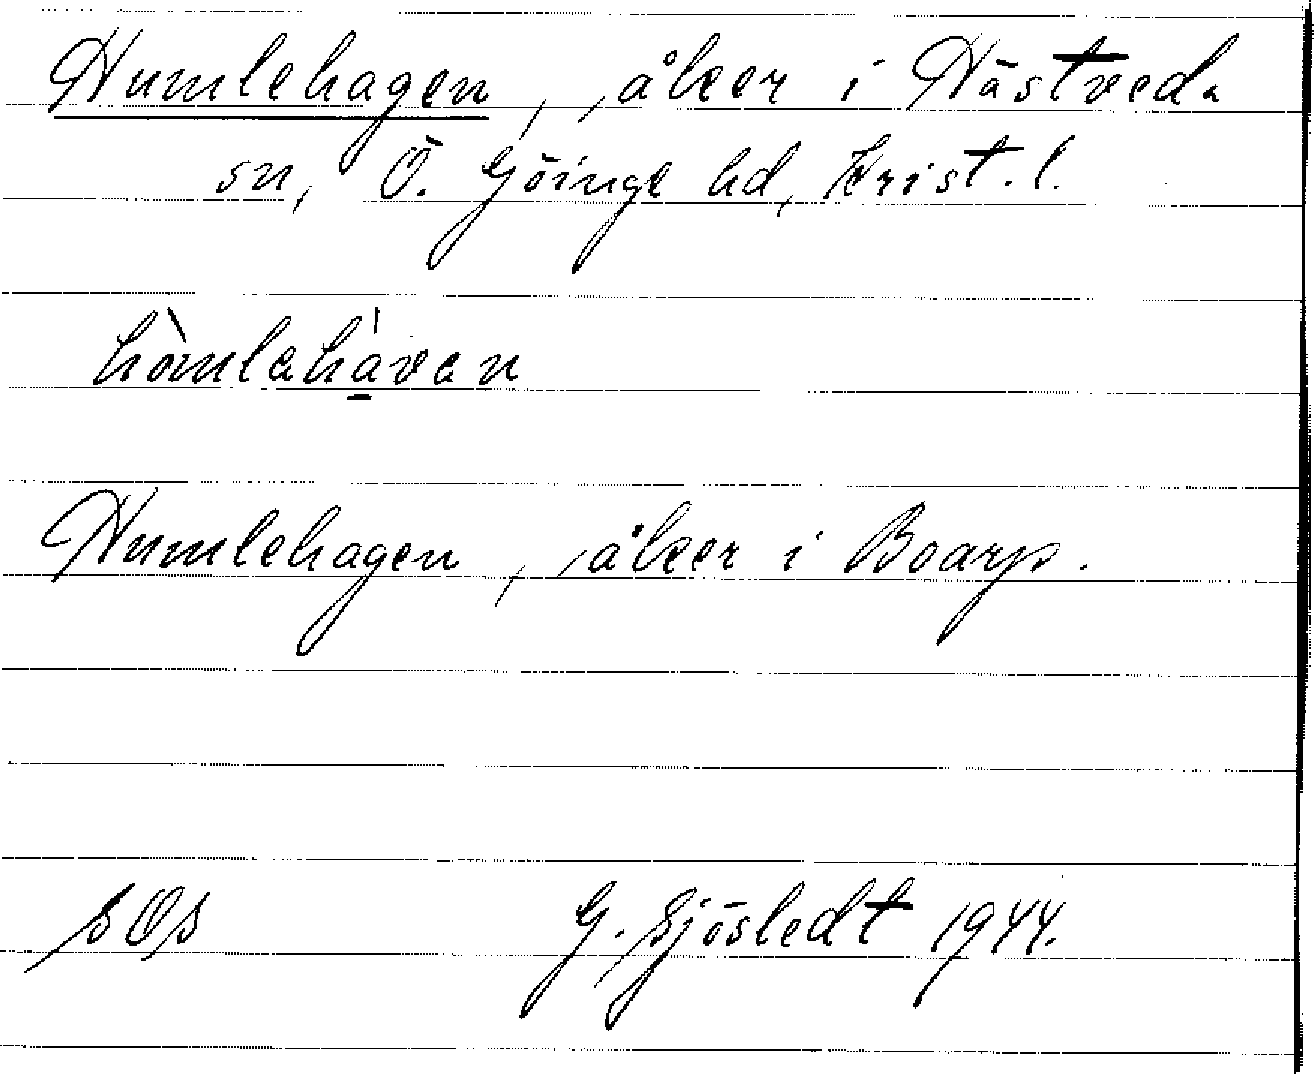 Humlehagen, åker i Hästveda
sn, Ö. Göinge hd, Krist. l.
hòmlahá̱van
Humlehagen, åker i Boarp.
sOs G. Sjöstedt 1944.